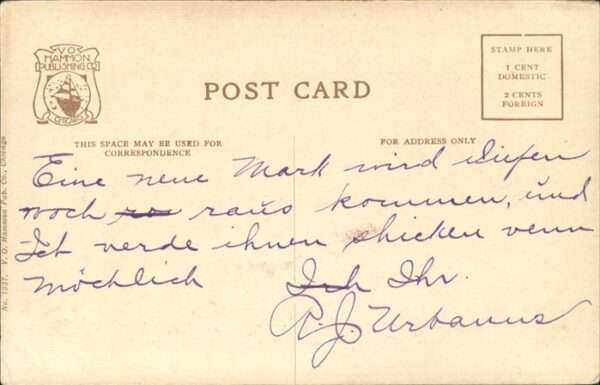 V.O.
HAMMON
PUBLISHING CO.
CHICAGO
POST CARD
STAMP HERE
1 CENT
DOMESTIC
2 CENTS
FOREIGN
THIS SPACE MAY BE USED FOR
CORRESPONDENCE
FOR ADDRESS ONLY
Eine neue Mark wird diesen
noch raus kommen, und
Ich werde ihnen shicken wenn
möchlich Ich Ihr.
R. J. Urbanus
No. 1337. V. O. Hammon Pub. Co., Chicago